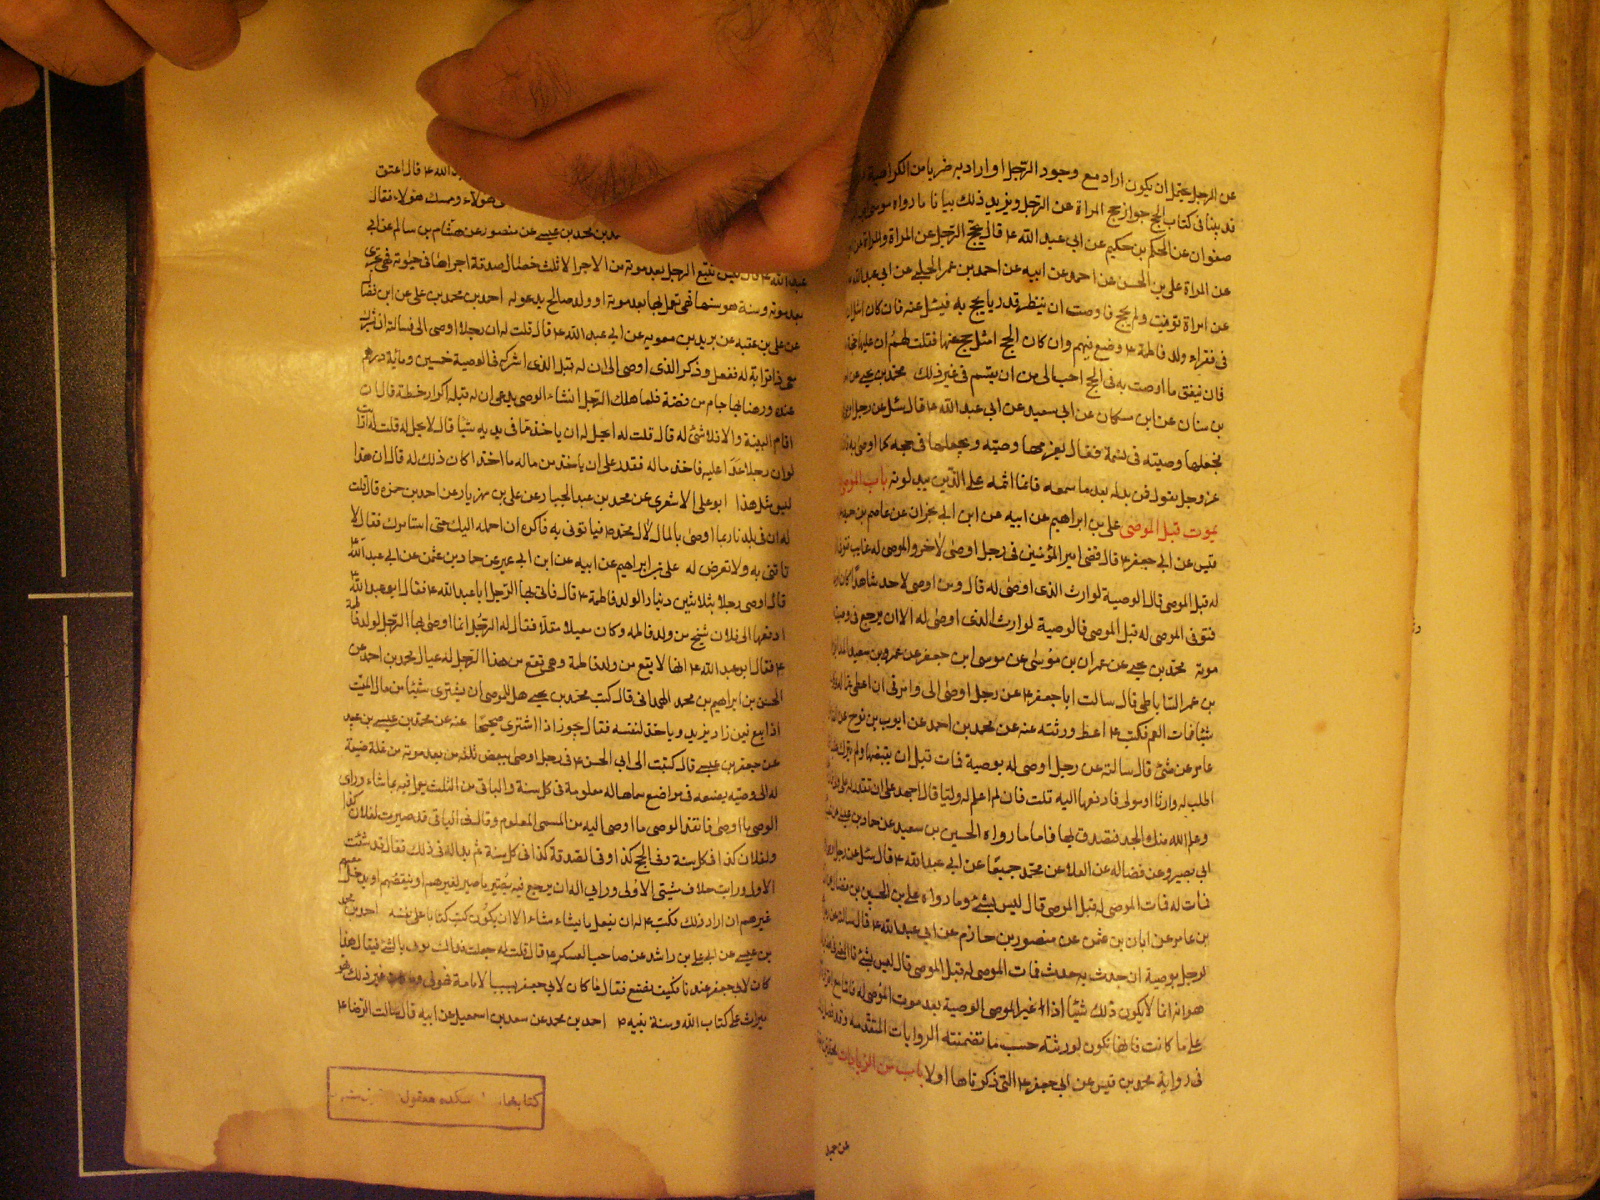 عن الرجل يحتمل ان يكون اراد مع وجود الرجل او اراد به ضربا من الكراهية
قد بينا في كتاب الحج جواز حج المراة عن الرجل ويزيد ذلك بيانا ما رواه موسى بن
صفوان عن الحكم بن حكيم عن ابي عبد الله ع قال يحج الرجل عن المراة والمراة عن
عن المراة علي بن الحسن عن احمد عن ابيه عن احمد بن عمر الحلبي عن ابي عبد الله
عن امراة توفيت ولم يحج فاوصت ان ينظر قدر ما يحج به فيسئل عنه فان كان امثل ان
في فقراء ولد فاطمة ع وضع فيهم وان كان الحج امثل حج عنها فقلت لهم ان عليها حجة
فان ينفق ما اوصت به في الحج احب الي من ان يقسم في غير ذلك محمد بن يحيى عن
بن سنان عن ابن مسكان عن ابي سعيد عن ابي عبد الله ع قال سئل عن رجل اوصى
فجعلها وصيته في نسمة فقال يغرمها وصيه ويجعلها في حجه كما اوصى به
عز وجل يقول فمن بدله بعد ما سمعه فانما اثمه على الذين يبدلونه باب الموصى
يموت قبل الموصي علي بن ابراهيم عن ابيه عن ابن ابي نجران عن عاصم بن حميد
قيس عن ابي جعفر ع قال قضى امير المؤمنين في رجل اوصى لاخر والموصى له غايب
له قبل الموصي قال الوصية لوارث الذي اوصى له قال ومن اوصى لاحد شاهدا كان او
فتوفى الموصى له قبل الموصي فالوصية لوارث الذي اوصى له الا ان يرجع في وصيته
موته محمد بن يحيى عن عمران بن موسى عن موسى ابن جعفر عن عمرو بن سعيد
بن عمر الساباطي قال سالت ابا جعفر ع عن رجل اوصى الي وامرني ان اعطي عما له
شيئا فمات العم فكتب ع اعط ورثته عنه عن محمد بن احمد عن ايوب بن نوح عن
عامر عن مثنى قال سالته عن رجل اوصى له بوصية فمات قبل ان يقبضها ولم يترك
اطلب له وارثا او مولى فادفعها اليه قلت فان لم اعلم له وليا قال اجهد على ان تقدر له على
وعلم الله منك الجد فتصدق بها فاما ما رواه الحسين بن سعيد عن حماد بن عيسى عن
ابي بصير وعن فضالة عن العلا عن محمد جميعا عن ابي عبد الله ع قال سئل عن رجل
فمات له فمات الموصى له قبل الموصي قال ليس بشيء وما رواه علي بن الحسن بن فضال
بن عامر عن ابان بن عثمن عن منصور بن حازم عن ابي عبد الله ع قال سالته عن
لرجل بوصية ان حدث به حدث فمات الموصى له قبل الموصي قال ليس بشيء
هو انه انما لا يكون ذلك شيئا اذا غير الموصي الوصية بعد موت الموصى له فاما مع
على ما كانت فانها تكون لورثته حسب ما تضمنته الروايات المتقدمه
في رواية محمد بن قيس عن ابي جعفر ع التي ذكرناها اولا باب من الزيادات
الله ع قال اعتق
هولاء ومسك هولاء فقال
محمد بن عيسى عن منصور عن هشام بن سالم عن ابي
عبد الله ع قال ليس يتبع الرجل بعد موته من الاجر الا ثلث خصال صدقة اجراها في حيوته فهي تجري
بعد موته وسنة هو سنها فهي تعمل بها بعد موته او ولد صالح يدعو له احمد بن محمد بن علي عن ابن فضال
عن علي بن عقبه عن بريد بن معويه عن ابي عبد الله ع قال قلت له ان رجلا اوصى الي فسالته ان يشرك
معي ذا قرابة له ففعل وذكر الذي اوصى الي ان له قبل الذي اشركه في الوصية خمسين ومائة درهم
عنده ورهنا بها جام من فضة فلما هلك الرجل انشاء الوصي يدعي ان له قبله اكرار حنطة قال ان
اقام البينة والا فلا شئ له قال قلت له ايحل له ان ياخذ مما في يديه شيئا قال لا يحل له قلت ارايت
لو ان رجلا عدا عليه فاخذ ماله فقدر على ان ياخذ من ماله ما اخذ اكان ذلك له قال ان هذا
ليس مثل هذا ابو علي الاشعري عن محمد بن عبد الجبار عن علي بن مهزيار عن احمد بن حمزه قال قلت
له ان في بلدنا ربما اوصى بالمال لال محمد ع فياتوني به فاكره ان احمله اليك حتى استامرك فقال لا
تاتني به ولا تعرض له علي بن ابراهيم عن ابيه عن ابن ابي عمير عن حماد بن عثمن عن ابي عبد الله ع
قال اوصى رجل بثلاثين دينارا لولد فاطمة ع قال فاتى بها الرجل ابا عبد الله ع فقال ابو عبد الله
ادفعها الى فلان شيخ من ولد فاطمه وكان معيلا مقلا فقال له الرجل انما اوصى بها الرجل لولد فاطمة
ع فقال ابو عبد الله ع انها لا يقع من ولد فاطمة وهي تقع من هذا الرجل له عيال محمد بن احمد عن
الحسين بن ابراهيم بن محمد الهمداني قال كتب محمد بن يحيى هل للوصي ان يشتري شيئا من مال الميت
اذا بيع فيمن زاد يزيد وياخذ لنفسه فقال يجوز اذا اشترى صحيحا عنه عن محمد بن عيسى بن عبيد
عن جعفر بن عيسى قال كتبت الى ابي الحسن ع في رجل اوصى ببعض ثلثه من بعد موته من غلة ضيعة
له الى وصيه يضعه في مواضع سماها له معلومة في كل سنة والباقي من الثلث يعمل فيه بما شاء وراى
الوصي ما اوصى فانفذ الوصي ما اوصى اليه من المسمى المعلوم وقال في الباقي قد صيرت لفلان كذا
ولفلان كذا في كل سنة وفي الحج كذا وفي الصدقة كذا في كل سنة ثم بدا له في ذلك فقال قد شئت
الاول ورايت خلاف مشيتي الاولى ورايي اله ان يرجع فيه يصير ما صير لغيرهم او ينقصهم او يدخل معهم
غيرهم ان اراد ذلك فكتب ع له ان يفعل ما يشاء الا ان يكون كتب كتابا على نفسه احمد بن محمد
بن عيسى عن ابي علي بن راشد عن صاحب العسكر ع قال قلت له جعلت فداك يوتى بالشئ فيقال هذا
كان لابي جعفر عندنا فكيف نصنع فقال ما كان لابي جعفر بسبب الامامة فهو لي وما كان غير ذلك فهو
ميراث على كتاب الله وسنة نبيه ع احمد بن محمد عن سعد بن اسمعيل عن ابيه قال سالت الرضا ع
كتابخانه دانشكده معقول